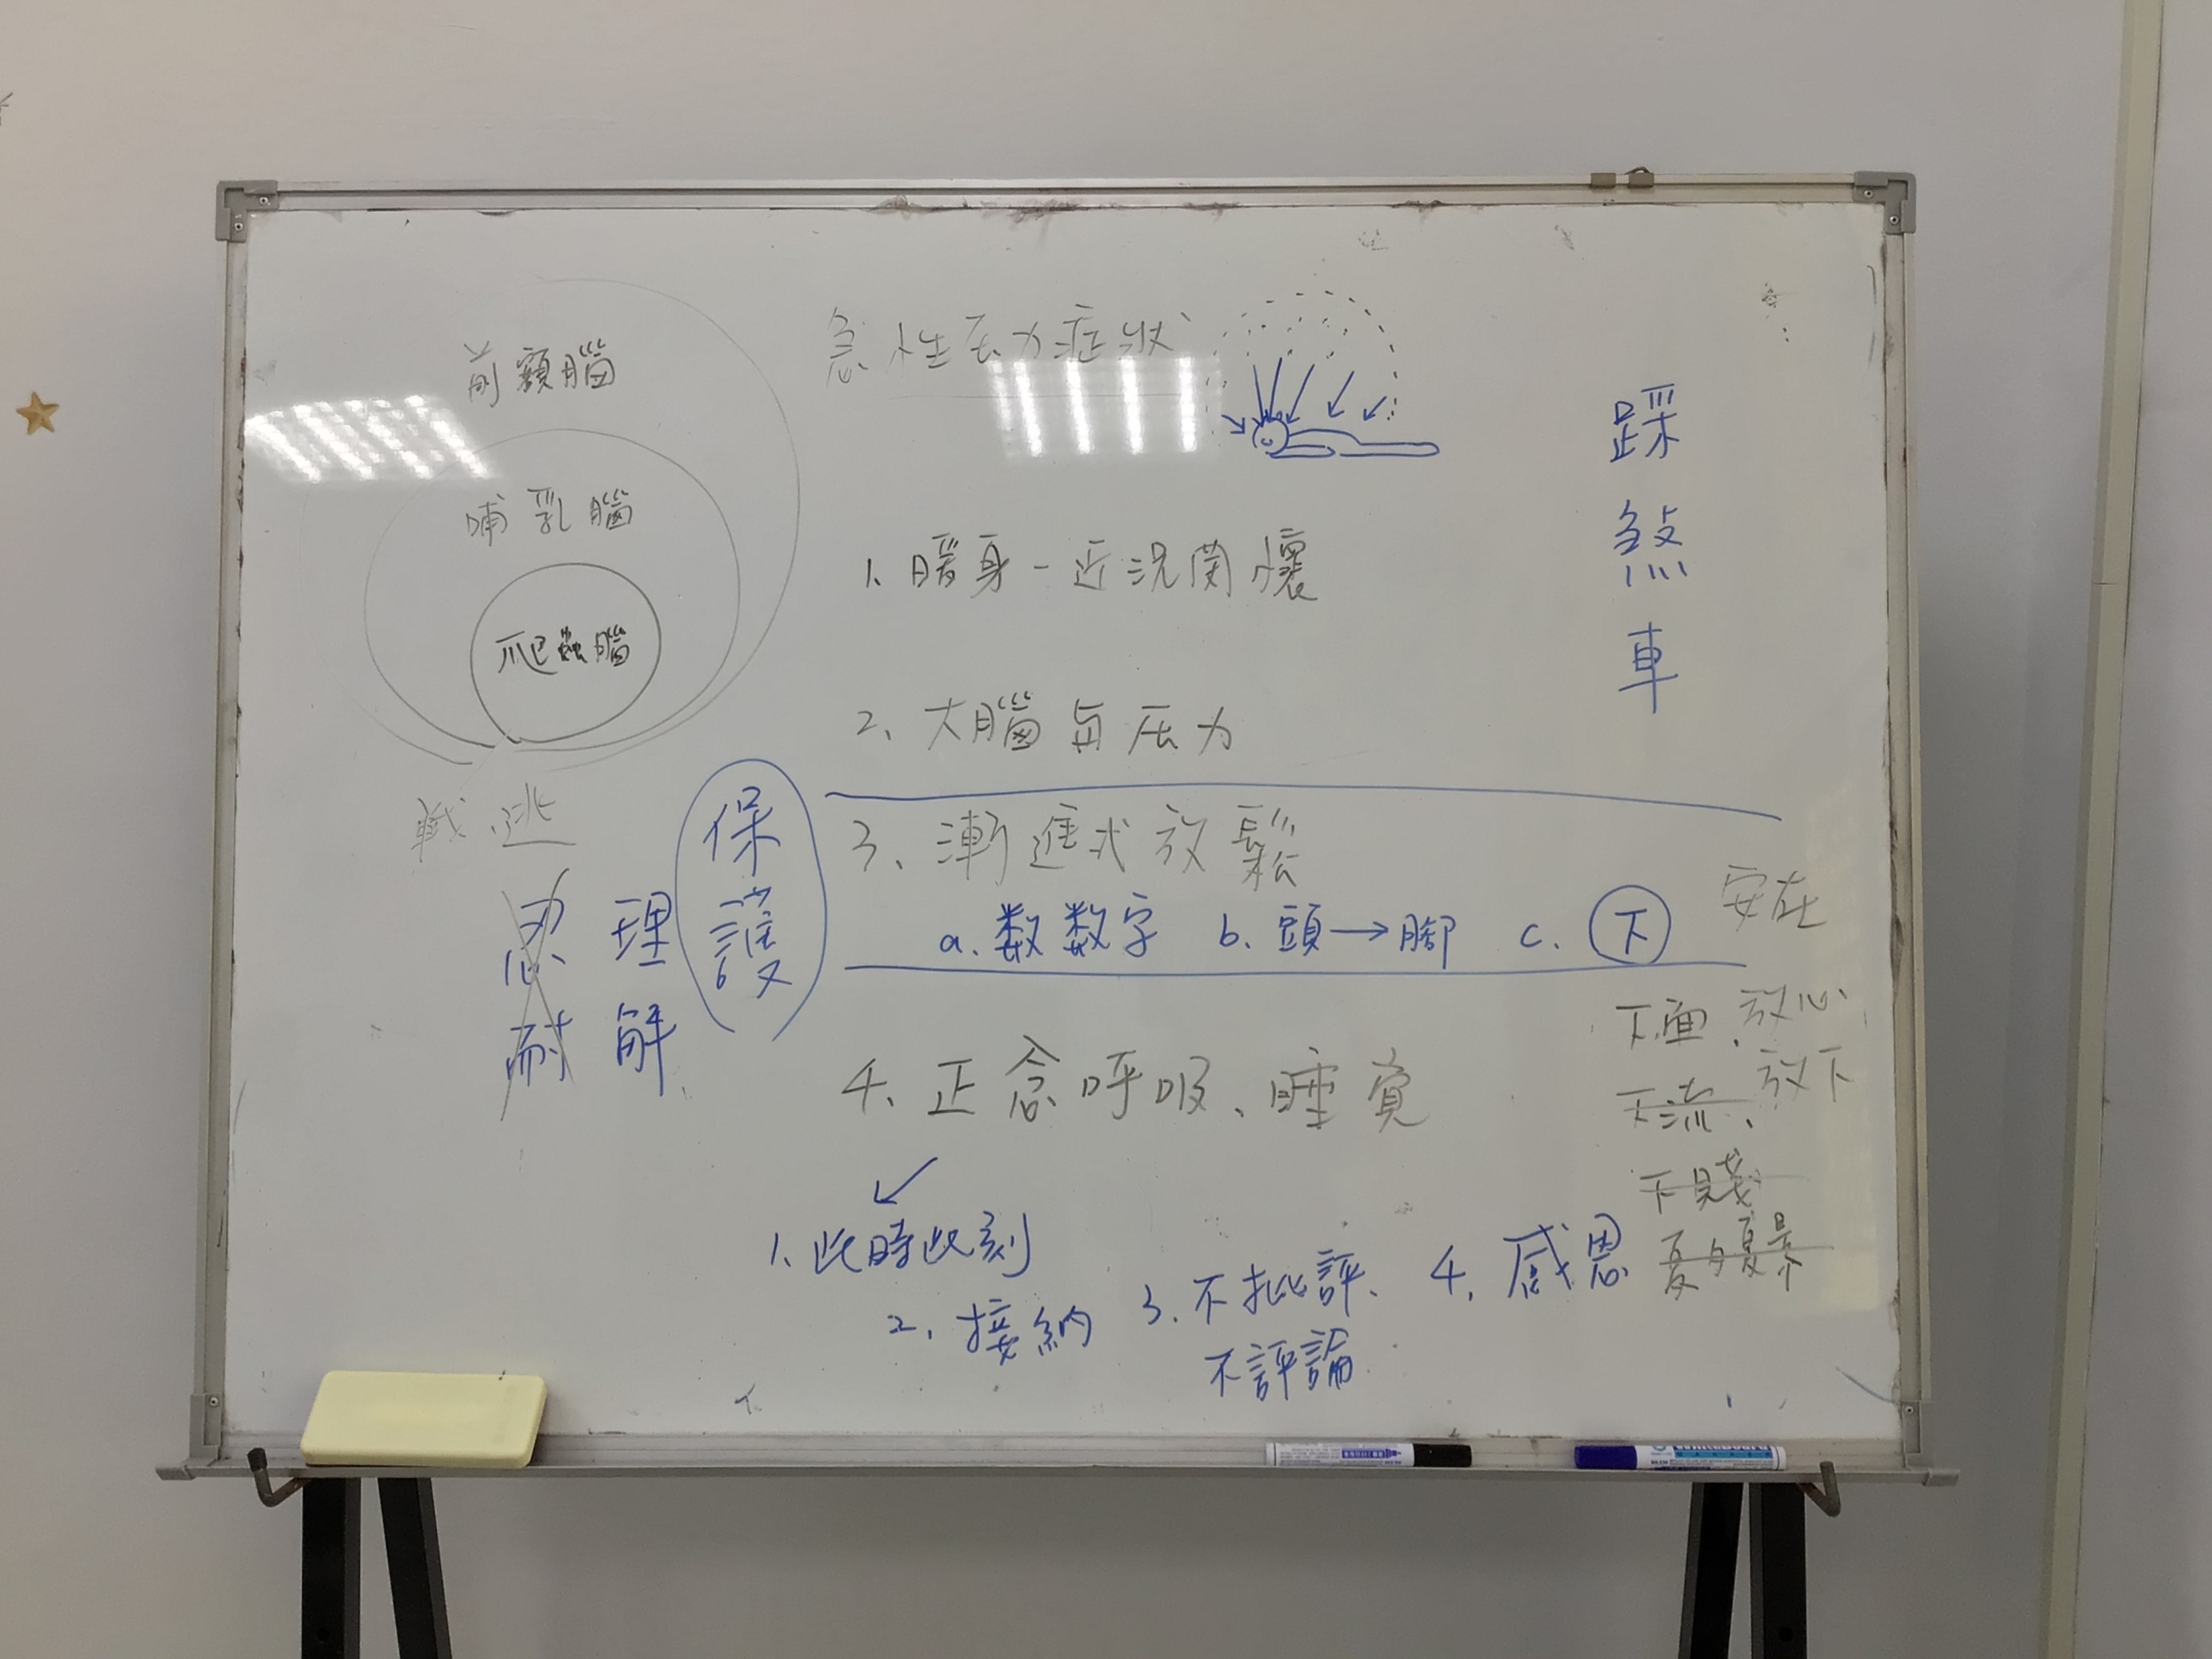 前額腦
哺乳腦
爬蟲腦
戰、逃
忍耐
理解
保護
急性压力症狀
1、暖身-近況関懷
2、大腦與压力
3、漸進式放鬆
a.数数字 b.頭→腳 c.下
安在
4、正念呼吸、睡覚
1、此時此刻
2、接納
3、不批評、
不評論
4、感恩
踩煞車
下面、放心
下流、放下
下賤
Whiteboard